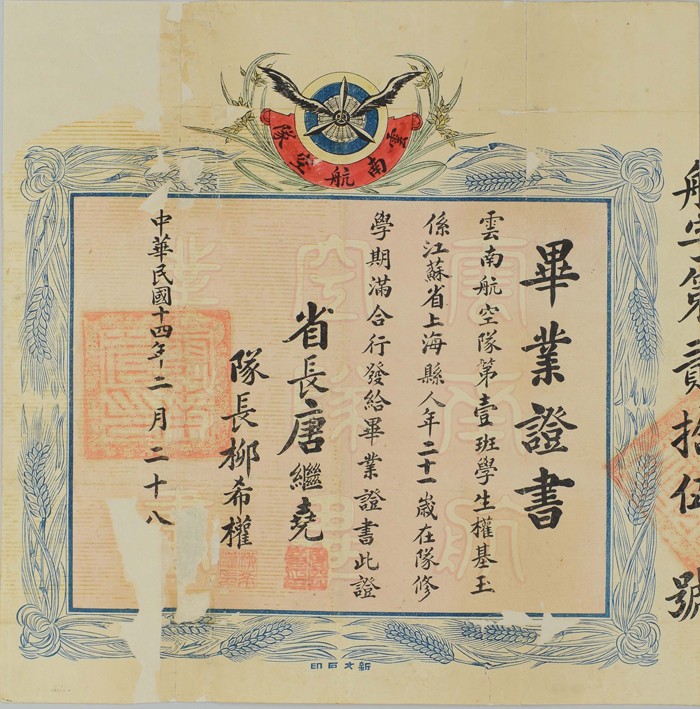 航字第貳拾伍號
雲南航空隊
畢業證書
雲南航空隊第壹班學生權基玉
係江蘇省上海縣人年二十一歲在隊修
學期滿合行發給畢業證書此證
省長唐繼堯
隊長柳希權
中華民國十四年二月二十八
新文石印